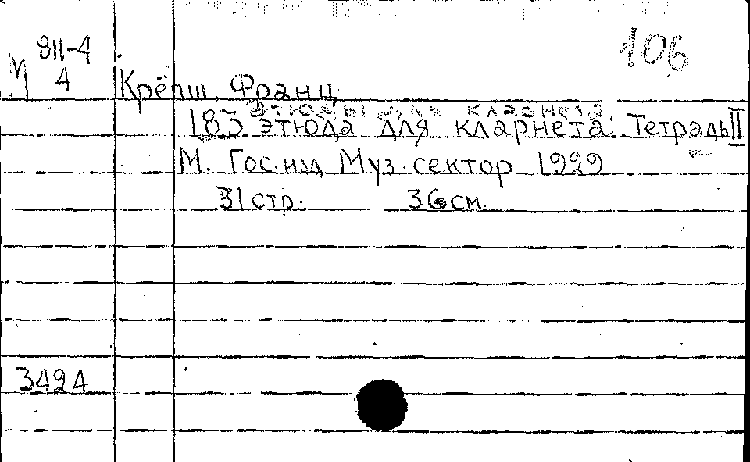 911-4
106
М 4 Крёпш Франц
183 этюда для кларнета. Тетрадь II
М. Гос.изд Муз.сектор 1929
31 стр. 36 см.
3424